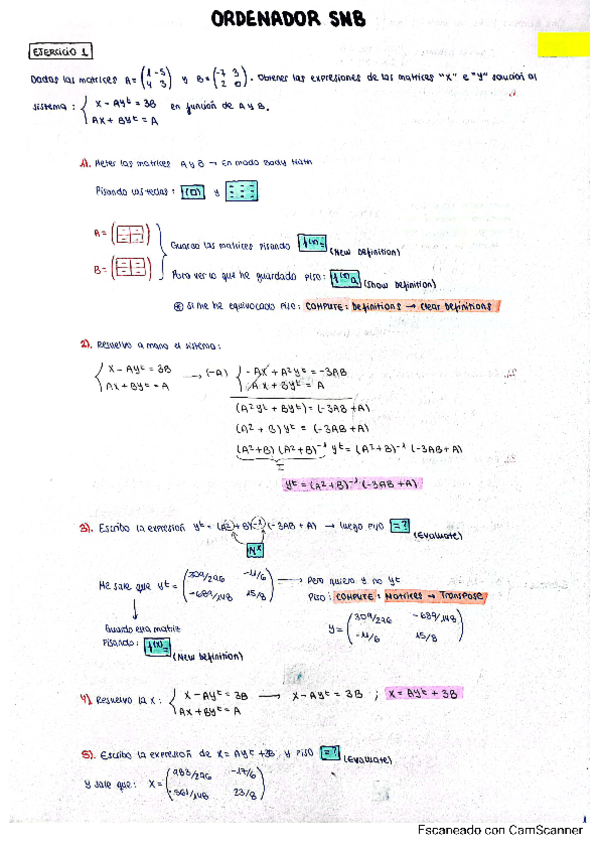 ORDENADOR SNB
EJERCICIO 1
Dadas las matrices A = (1 -5 / 4 3) y B = (-7 3 / 2 0). Obtener las expresiones de las matrices "X" e "Y" solución al
sistema : { X - AYᵗ = 3B en función de A y B.
AX + BYᵗ = A
1). Meter las matrices A y B → En modo Body Math
Pisando las teclas : y
A =
Guardo las matrices pisando f(x)= (New Definition)
B =
Para ver lo que he guardado piso: (Show Definition)
* Si me he equivocado piso: COMPUTE: Definitions → Clear Definitions
2). Resuelvo a mano el sistema:
{ X - AYᵗ = 3B → (-A) { -AX + A²Yᵗ = -3AB
AX + BYᵗ = A AX + BYᵗ = A
(A²Yᵗ + BYᵗ) = (-3AB + A)
(A² + B) Yᵗ = (-3AB + A)
(A² + B) (A² + B)⁻¹ Yᵗ = (A² + B)⁻¹ (-3AB + A)
I
Yᵗ = (A² + B)⁻¹ (-3AB + A)
3). Escribo la expresión Yᵗ = (A² + B)⁻¹ (-3AB + A) → luego piso =? (Evaluate)
Nˣ
Me sale que Yᵗ = (309/296 -11/6 / -689/148 15/8) → Pero quiero Y no Yᵗ
Piso : COMPUTE : Matrices → Transpose
Guardo esta matriz
Pisando : f(x)= (New Definition)
Y = (309/296 -689/148 / -11/6 15/8)
4) Resuelvo la X : { X - AYᵗ = 3B → X - AYᵗ = 3B ; X = AYᵗ + 3B
AX + BYᵗ = A
5). Escribo la expresión de X = AYᵗ + 3B y piso =? (Evaluate)
Y sale que: X = (983/296 -17/6 / -361/148 23/8)
1
Escaneado con CamScanner